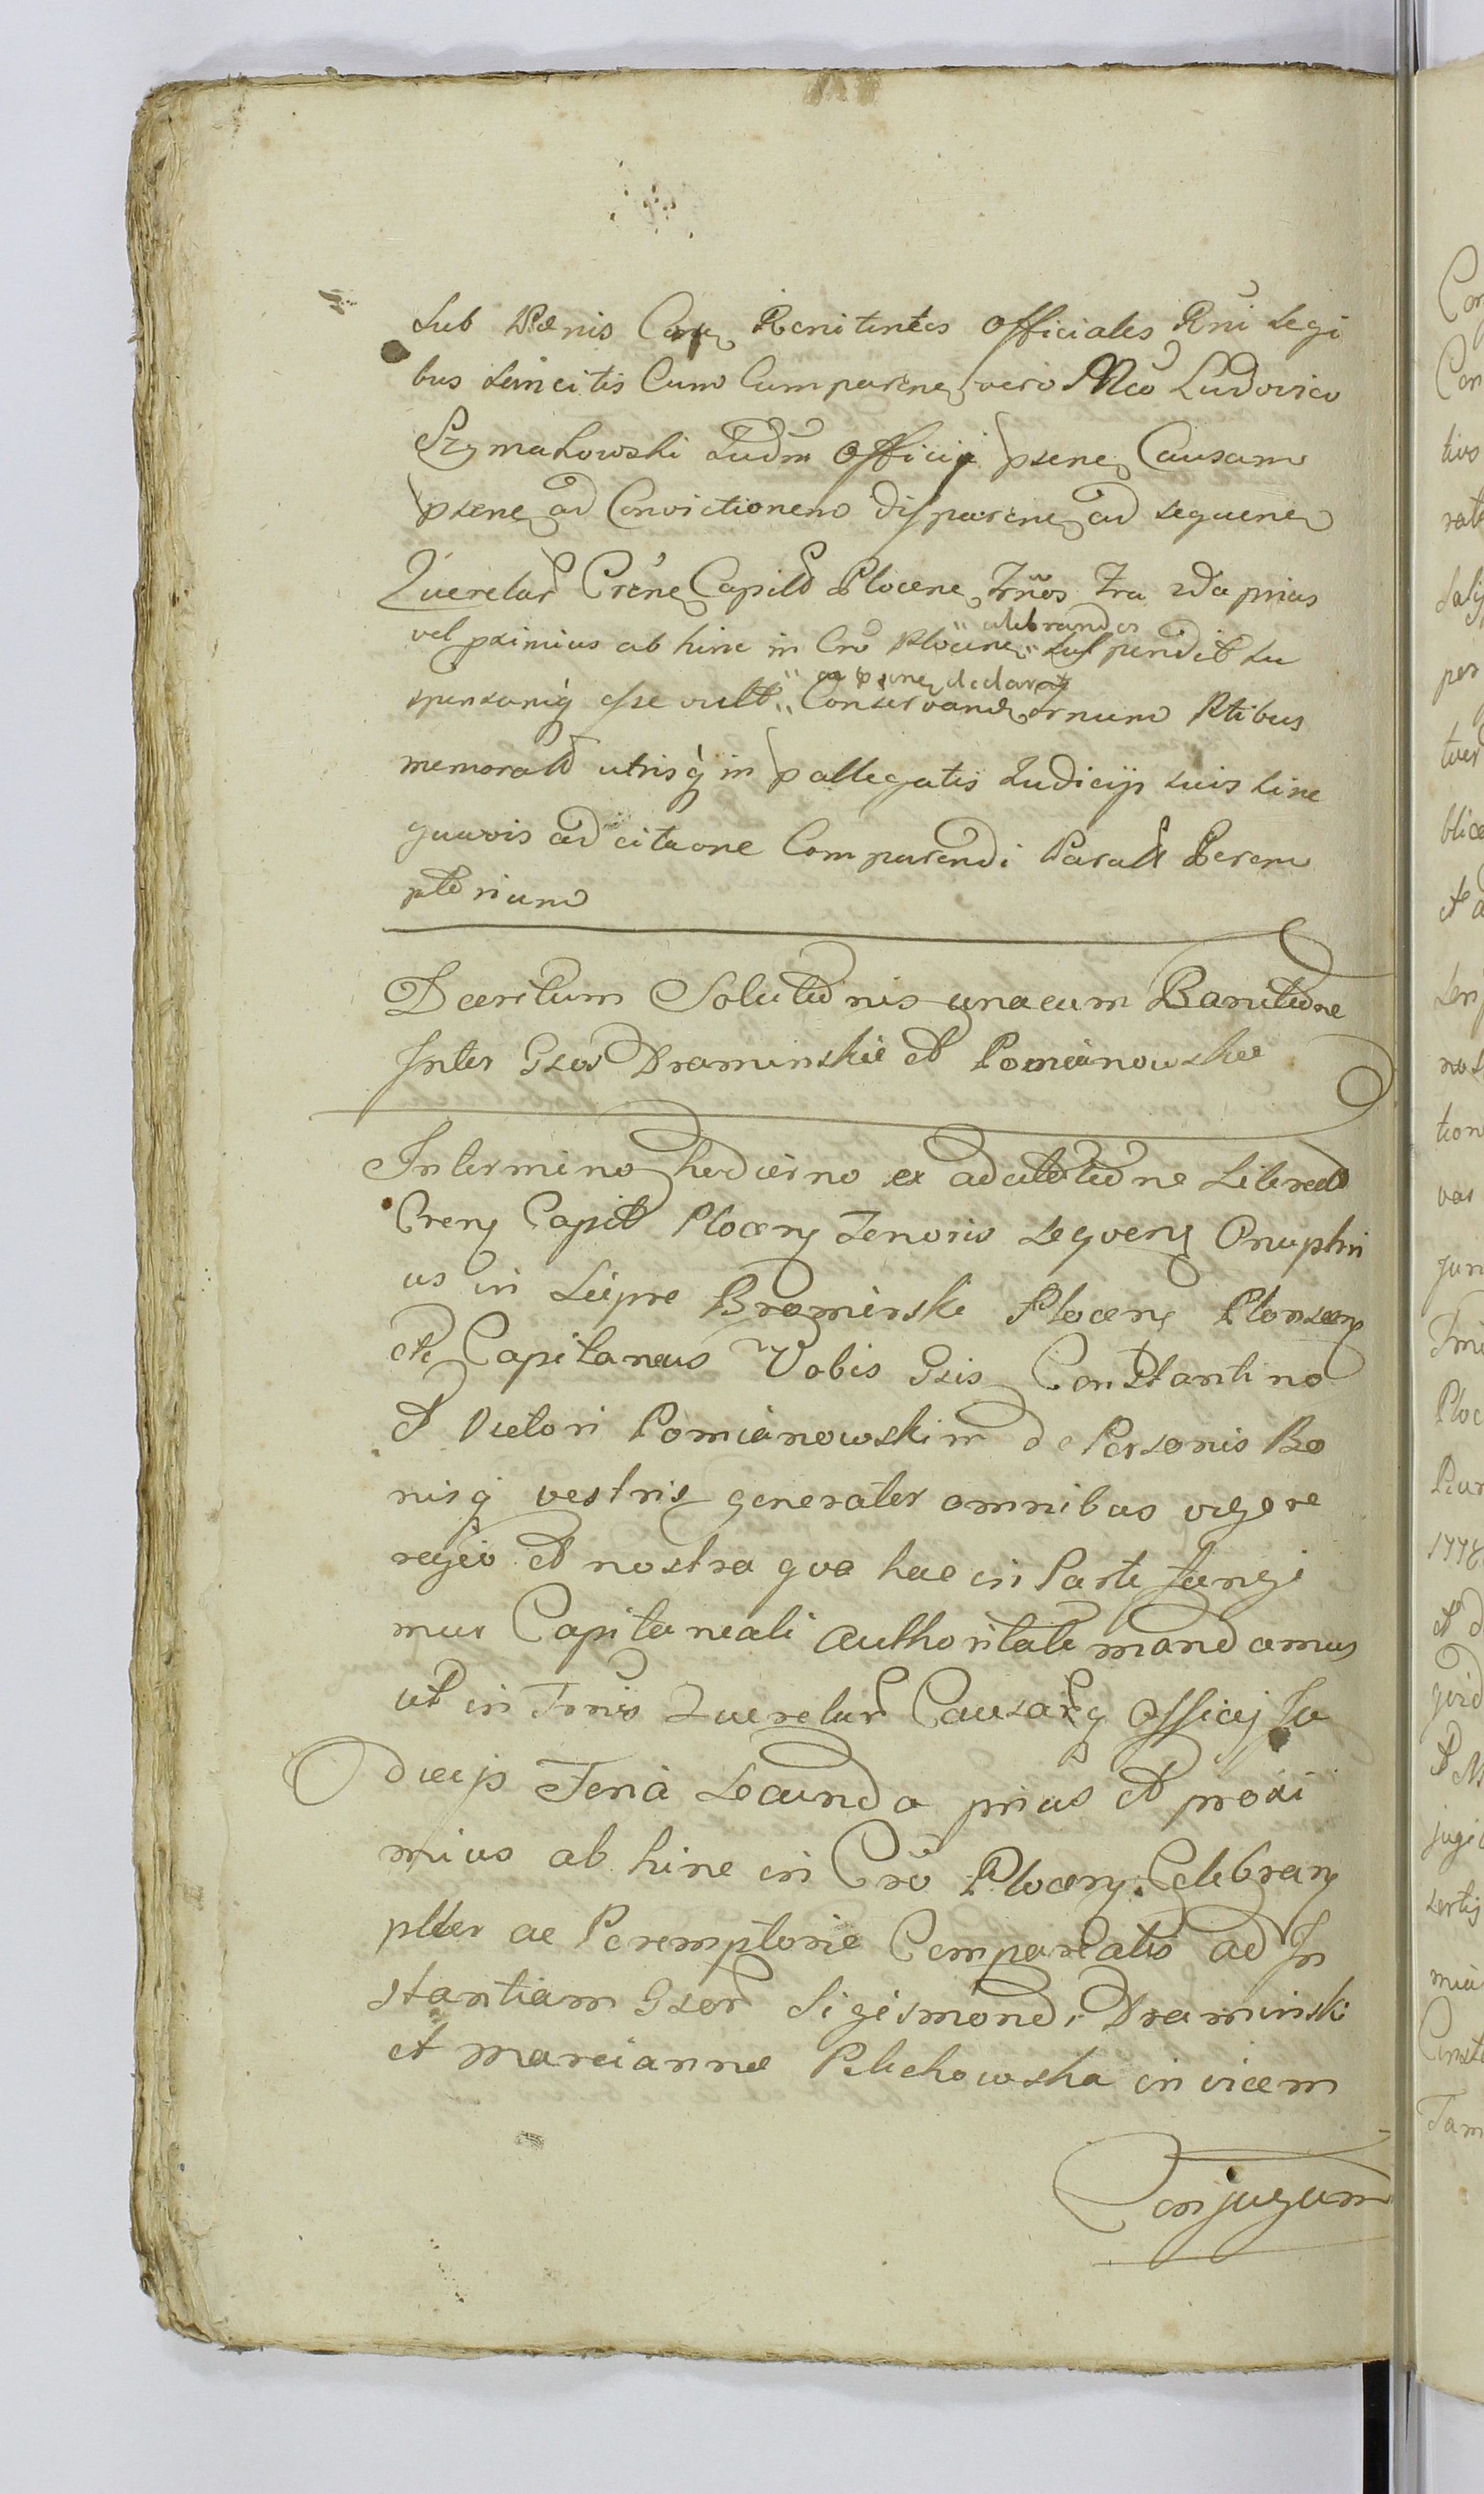 Sub Pœnis Con Renitentes Officiales Rni Legi
bus Sancitis Cum Comparene vero Mco Ludovico
Szymakowski Judm Officij psene Causam
psene ad Convictionem disparene ad sequene
Querelar Crene Capild Plocene Trnos Fra 2da prius
vel pximius ab hinc in Cro Plocene " celebrandos suspendit su
spensumq esse vult " ac psene declarat Conservand Trnum Ptibus
memorald utrisq in pallegatis Judicijs suis sine
quavis adcitaone Comparendi Parald Perem
ptorium
Decretum Solutionis unacum Banitione
Inter Gsos Draminskie et Pomianowskie
In termino hodierno ex adcitatione Literali
Crens Capit Plocens Tenoris seqvens Onuphri
us in Siepre Bromirski Plocens Plonscens
etc Capitaneus Vobis Gsis Constantino
et Victori Pomianowskim de Personis Bo
nisq vestris generater omnibus vigore
regio et nostra qva hac in Parte fungi
mur Capitaneali authoritate mandamus
ut in Trnis Querelar Causarq Officij Ju
dicijs Feria Secunda prius et proxi
mius ab hinc in Cro Plocens Celebrans
plter ac Peremptorie Compareatis ad In
stantiam Gsor Sigismondi Draminski
et Marcianne Pelichowska invicem
Conjugum